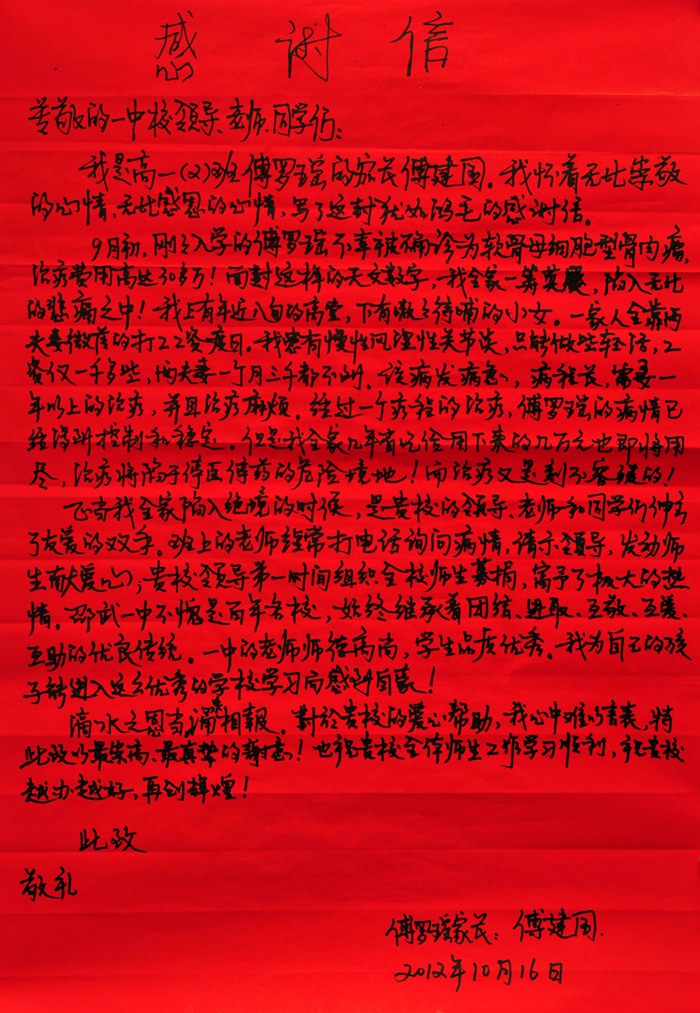 感谢信
尊敬的一中校领导、老师、同学们：
我是高一(2)班傅罗瑶的家长傅建国。我怀着无比崇敬
的心情，无比感恩的心情，写了这封犹如鸿毛的感谢信。
9月初，刚刚入学的傅罗瑶不幸被确诊为软骨母细胞型骨肉瘤，
治疗费用高达30多万！面對这样的天文数字，我全家一筹莫展，陷入无比
的悲痛之中！我上有年近八旬的高堂，下有嗷嗷待哺的小女。一家人全靠两
夫妻微薄的打工工资度日。我患有慢性风湿性关节炎，只能做些轻活，工
资仅一千多些，两夫妻一个月三千都不到。该病发病急，病程长，需要一
年以上的治疗，并且治疗麻烦。经过一个疗程的治疗，傅罗瑶的病情已
经得到控制和稳定。但是我全家几年省吃俭用下来的几万元也即将用
尽，治疗将陷于停医待药的危险境地！而治疗又是刻不容缓的！
正当我全家陷入绝境的时候，是贵校的领导、老师和同学们伸出
了友爱的双手。班上的老师经常打电话询问病情，请示领导，发动师
生献爱心；贵校领导第一时间组织全校师生募捐，寄予了极大的热
情。邵武一中不愧是百年名校，始终继承着团结、进取、互敬、互爱、
互助的优良传统。一中的老师师德高尚，学生品质优秀。我为自己的孩
子能进入这么优秀的学校学习而感到自豪！
滴水之恩当涌相報。對於贵校的爱心帮助，我心中难以言表，特
此致以最崇高、最真挚的謝意！也祝贵校全体师生工作学习顺利，祝贵校
越办越好，再创辉煌！
此致
敬礼
傅罗瑶家长：傅建国
2012年10月16日